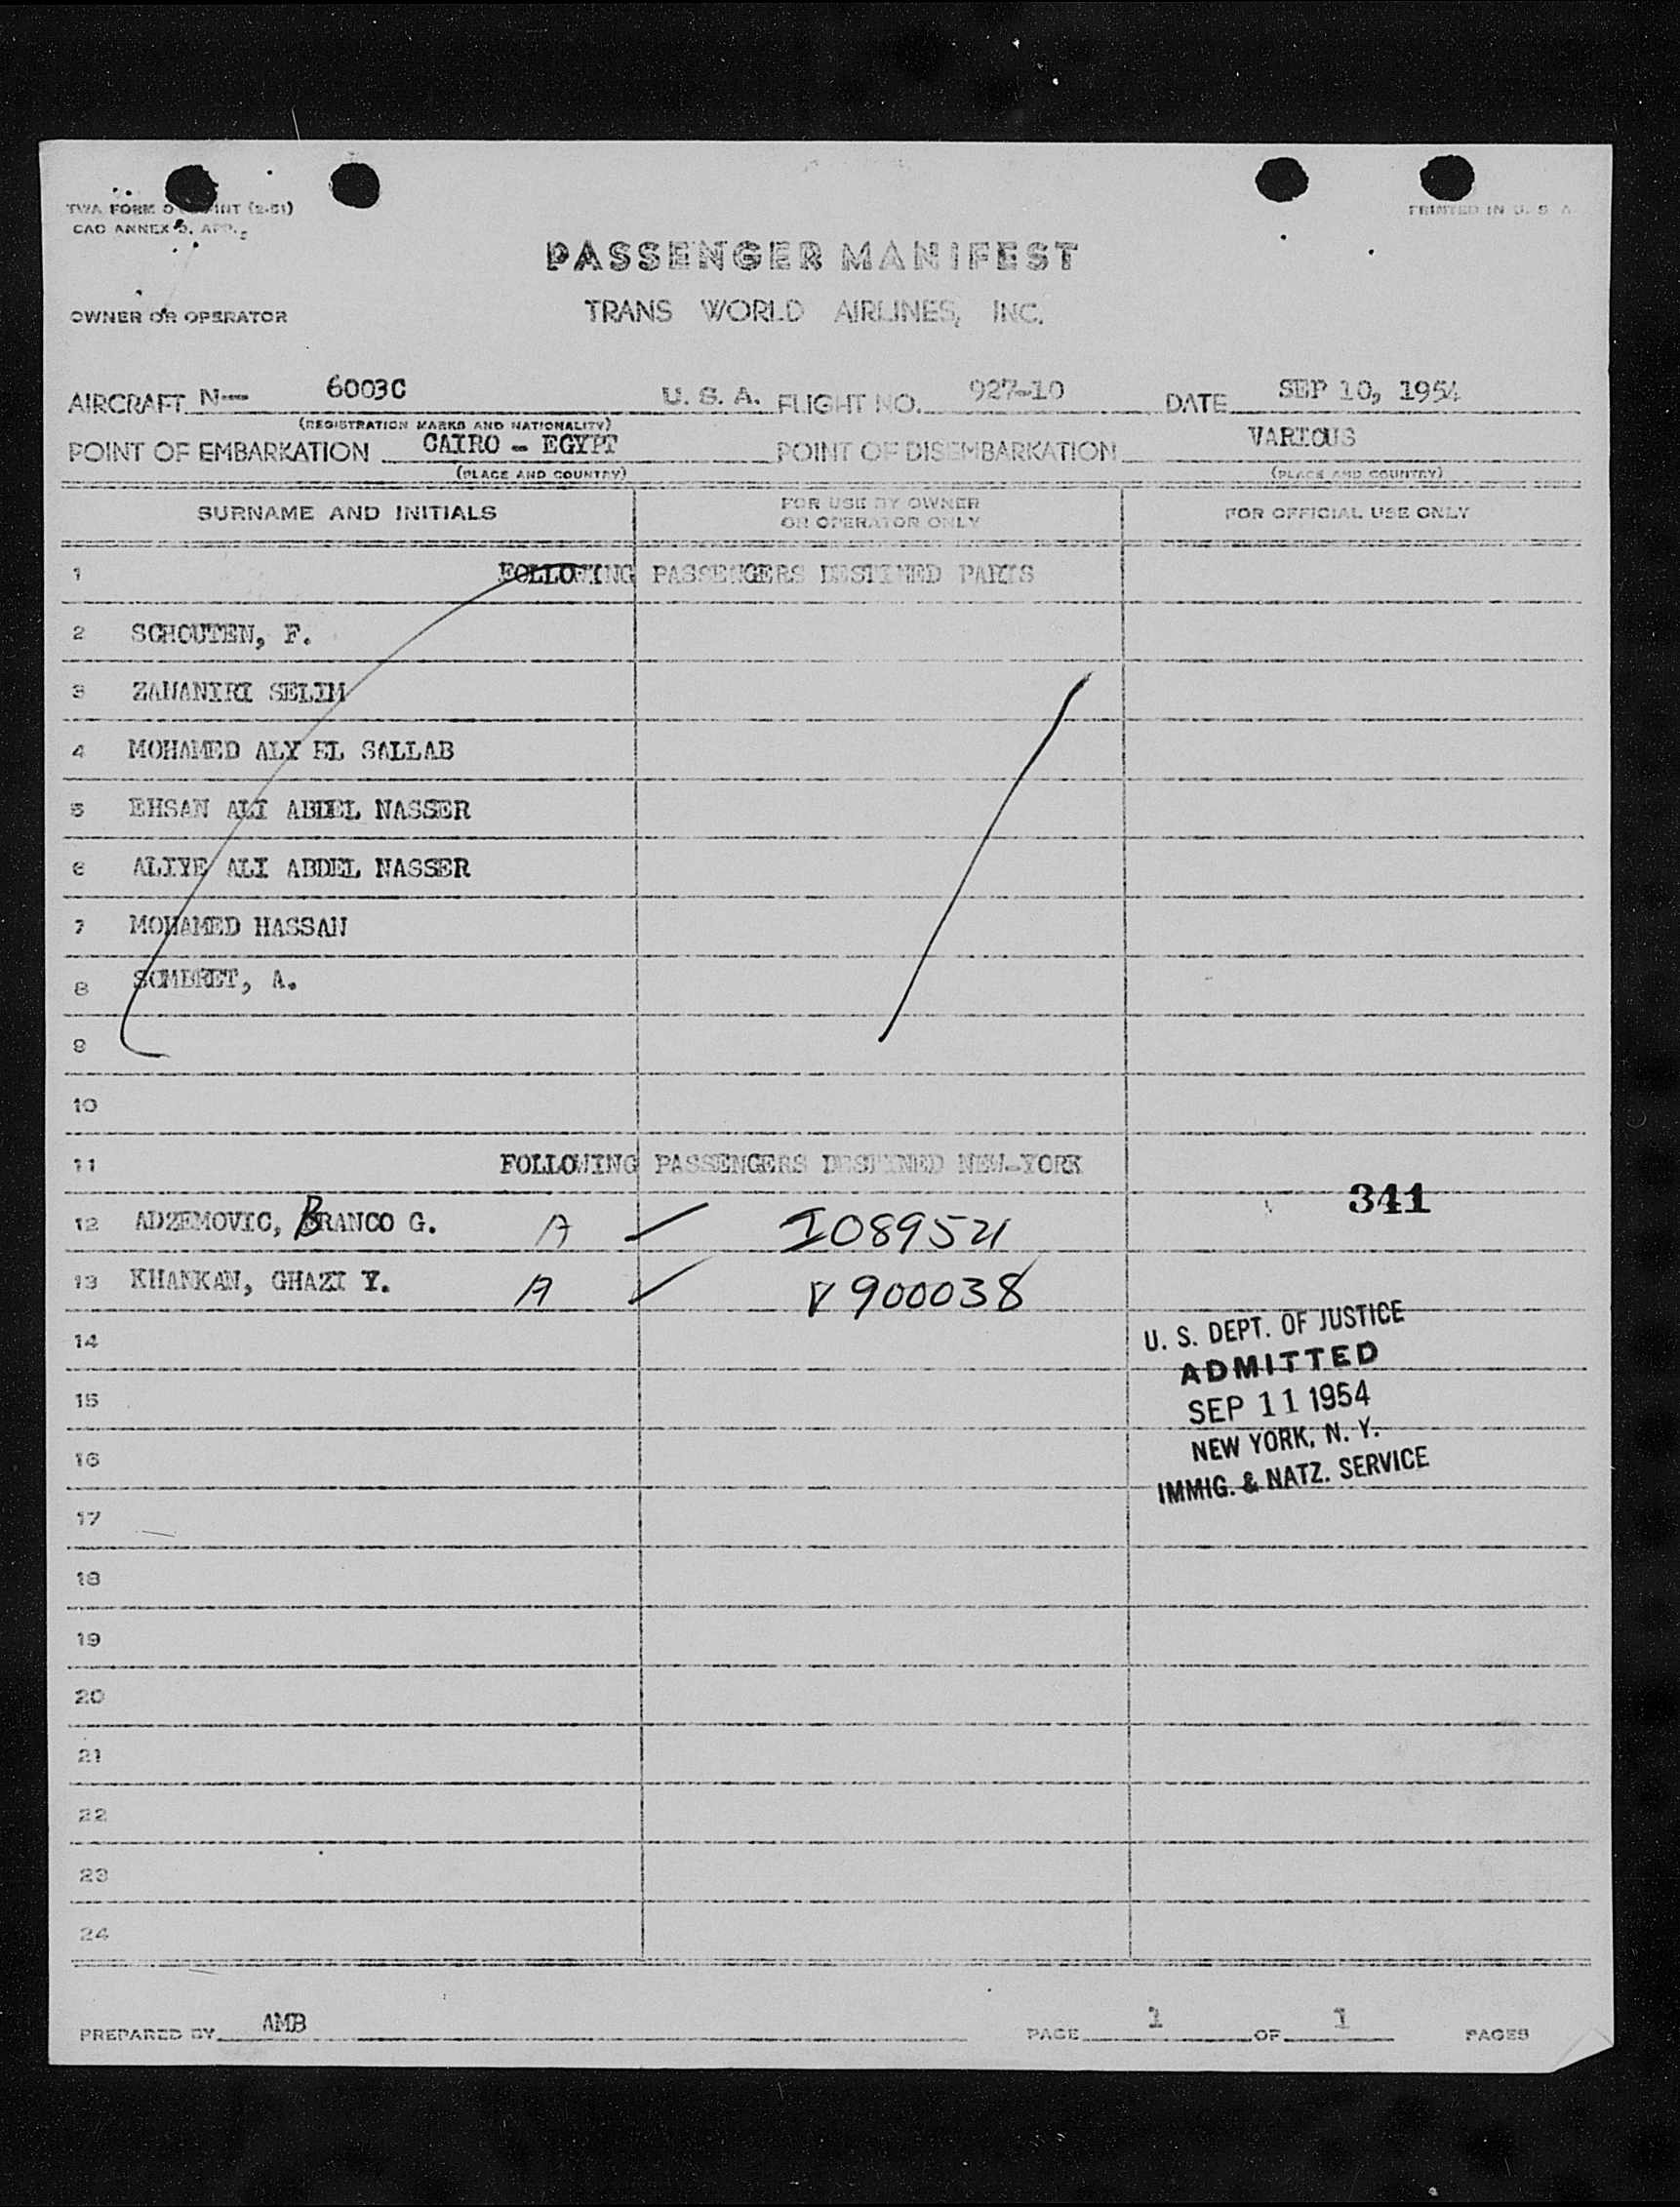 TWA FORM O INT (2-51)
CAO ANNEX 9, APP.
PRINTED IN U. S. A
PASSENGER MANIFEST
OWNER OR OPERATOR TRANS WORLD AIRLINES, INC.
AIRCRAFT N-- 6003C U. S. A. FLIGHT NO. 927-10 DATE SEP 10, 1954
(REGISTRATION MARKS AND NATIONALITY)
POINT OF EMBARKATION CAIRO - EGYPT POINT OF DISEMBARKATION VARIOUS
(PLACE AND COUNTRY) (PLACE AND COUNTRY)
SURNAME AND INITIALS FOR USE BY OWNER OR OPERATOR ONLY FOR OFFICIAL USE ONLY
1 FOLLOWING PASSENGERS DESTINED PARIS
2 SCHOUTEN, F.
3 ZAMANIRI SELIM
4 MOHAMED ALY EL SALLAB
5 EHSAN ALI ABDEL NASSER
6 ALIYE ALI ABDEL NASSER
7 MOHAMED HASSAN
8 SOMBRET, A.
9
10
11 FOLLOWING PASSENGERS DESTINED NEW-YORK
341
12 ADZEMOVIC, BRANCO G. A I089521
13 KHANKAN, GHAZI Y. A V900038
14
U. S. DEPT. OF JUSTICE
ADMITTED
15
SEP 11 1954
16
NEW YORK, N. Y.
IMMIG. & NATZ. SERVICE
17
18
19
20
21
22
23
24
PREPARED BY AMB PAGE 1 OF 1 PAGES